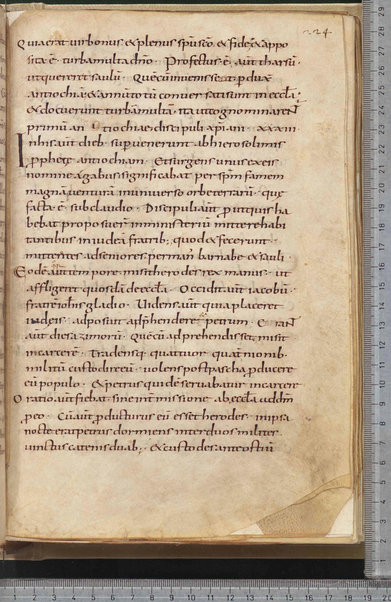 224
Quia erat uir bonus & plenus spu sco & fide & appo
sita ē turba multa dno · Profectus ē aut tharsū ·
ut quereret saulū · Quē cū inuenisset pduxit
antiochiā & annū totū conuersati sunt in eccla ·
& docuerunt turbā multā · ita ut cognominarent
primū antiochiae discipuli xpiani · xxxiii
In his aut dieb: superuenerunt ab hierosolimis
pphetę antiochiam · Et surgens unus ex eis
nomine agabus significabat per spm famem
magnā uenturā in uniuerso orbe terrarū · quę
facta ē sub claudio · Discipuli aut put quis ha
bebat proposuerunt in ministeriū mittere habi
tantibus in iudea fratrib; quod & fecerunt ·
mittentes ad seniores per man barnabe & sauli ·
Eodē aut tempore misit herodes rex manus · ut
affligeret quosdā de eccla · Occidit aut iacobū
fratrē iohis gladio · Uidens aut quia placeret
iudeis · adposuit adphendere & petrum · Erant
aut dies azimorū · Quē cū adprehendisset misit
in carcerē · Tradens quattuor quaternionib
militū custodire eū · uolens post pascha pducere
eū populo · Et petrus quidē seruabatur in carcere
Oratio aut fiebat sine intmissione ab eccla ad dm
p eo · Cū aut pducturus eū esset herodes · in ipsa
nocte erat petrus dormiens inter duos milites
uinctus catenis duab; · & custodes ante ostiū